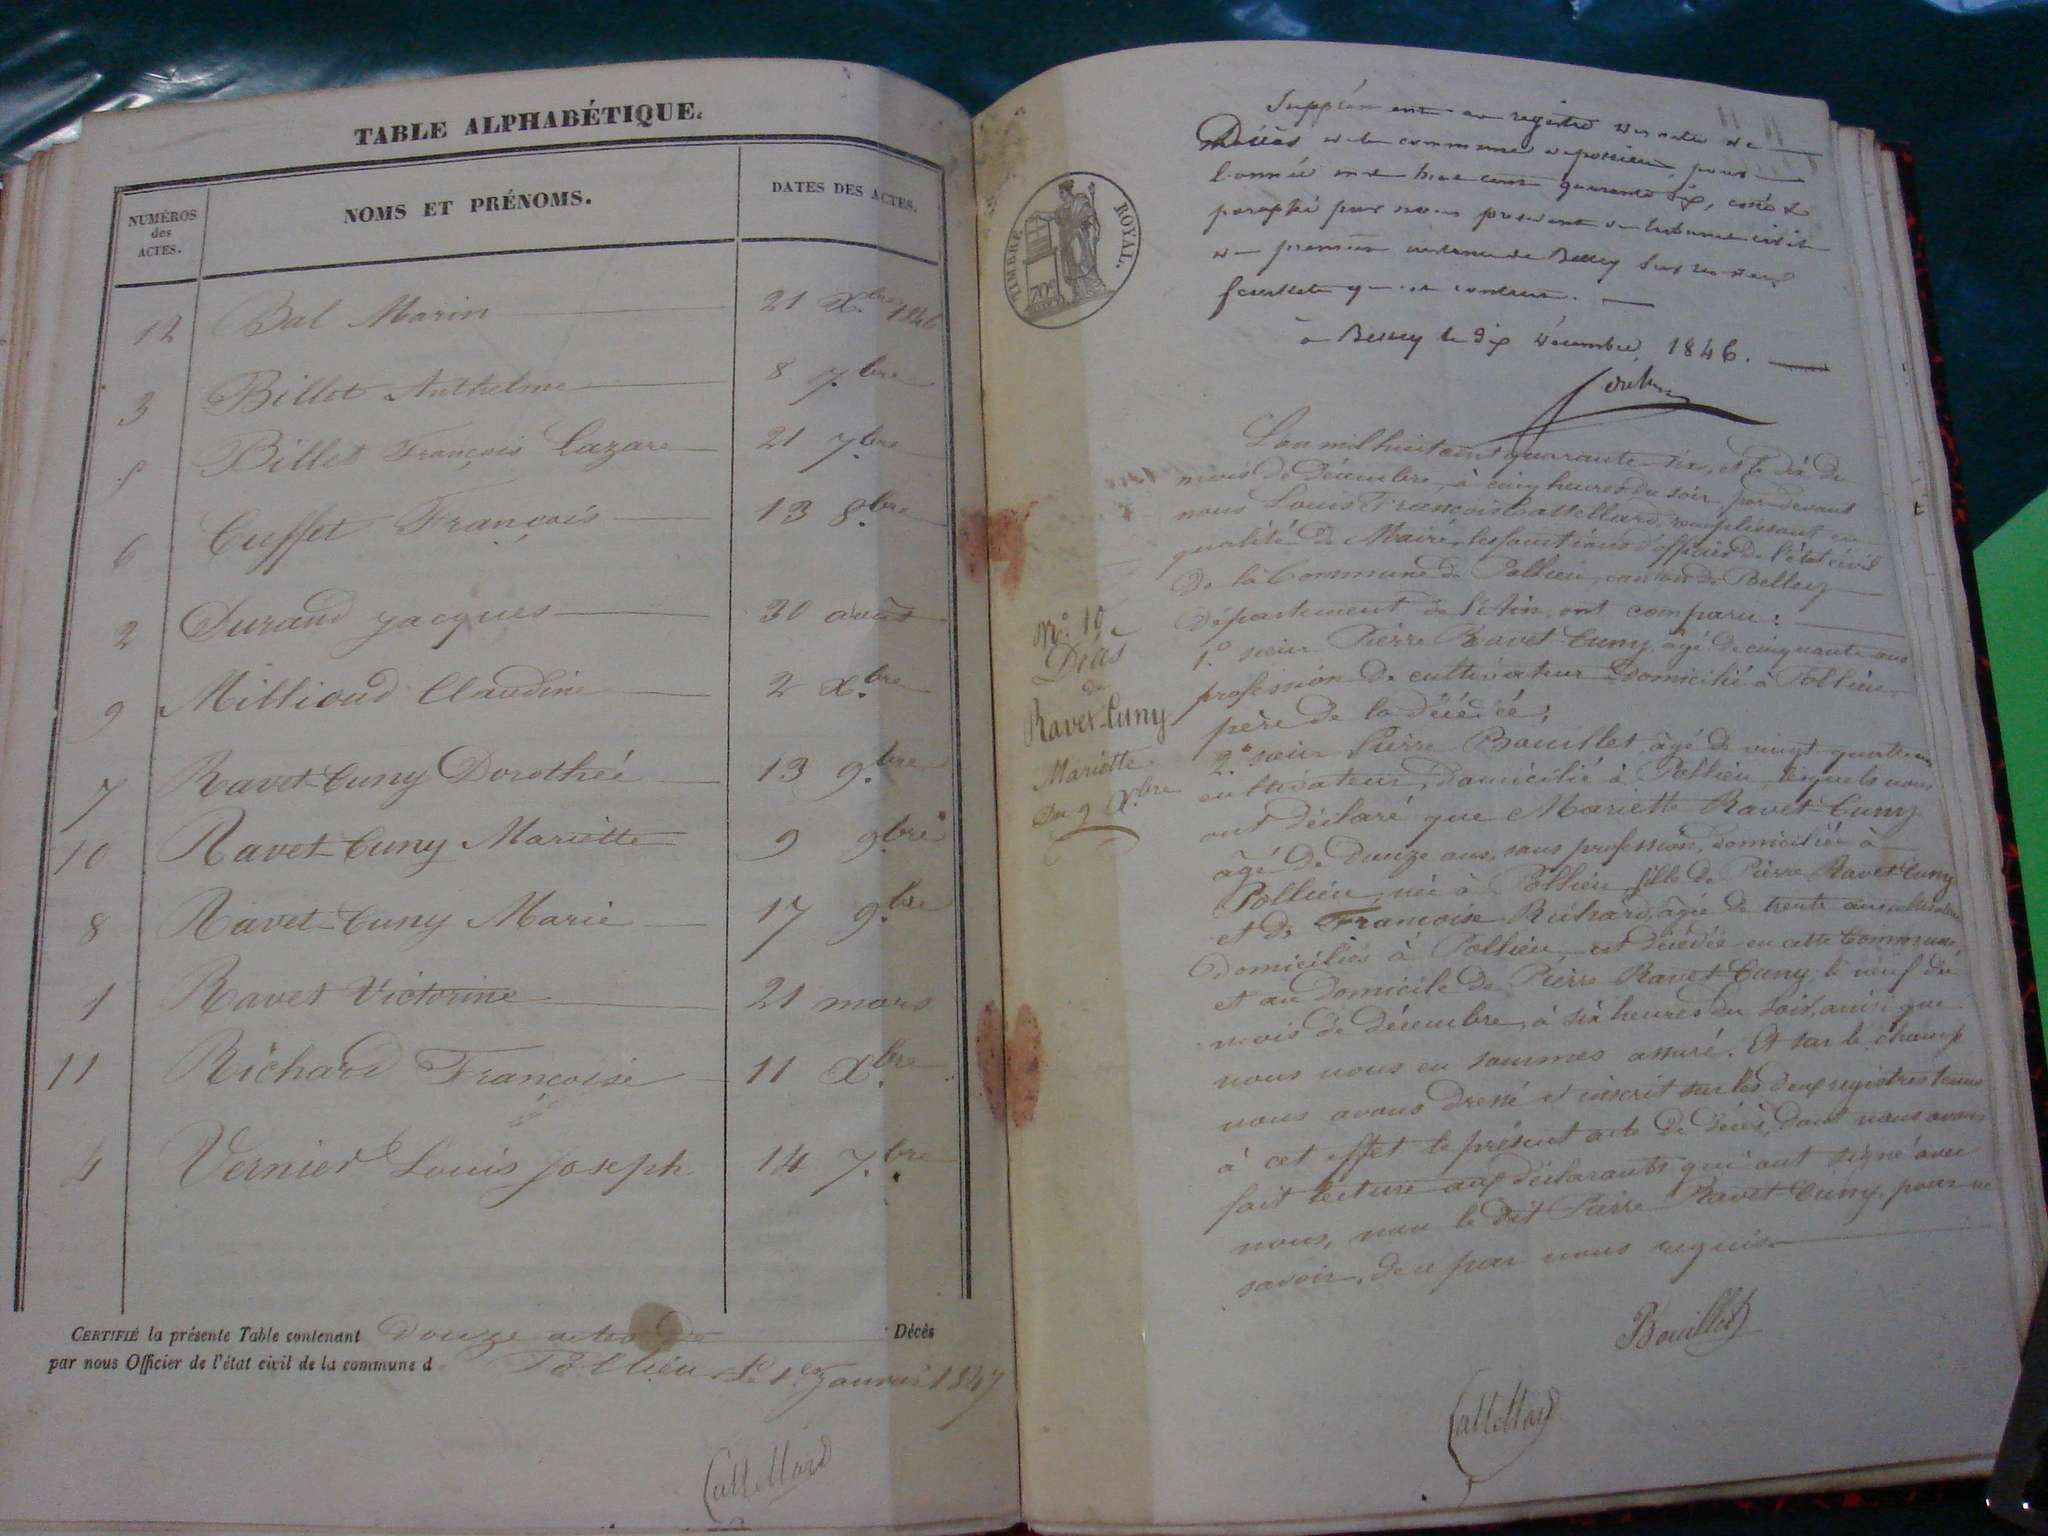 TABLE ALPHABÉTIQUE.
NUMÉROS des ACTES.
NOMS ET PRÉNOMS.
DATES DES ACTES.
12 Bal Marin 21 Xbre 1846
3 Billet Anthelme 8 7.bre
5 Billet François Lazare 21 7bre
6 Cuffet François 13 8.bre
2 Durand Jacques 30 août
9 Millioud Claudine 2 X.bre
7 Ravet-Cuny Dorothée 13 9.bre
10 Ravet-Cuny Mariette 9 9bre
8 Ravet-Cuny Marie 17 9.bre
1 Ravet Victorine 21 mars
11 Richard Françoise 11 X.bre
4 Vernier Louis Joseph 14 7.bre
CERTIFIÉ la présente Table contenant douze actes de Décès
par nous Officier de l'état civil de la commune d Pollieu le 1er Janvier 1847
Castellard
TIMBRE ROYAL.
70c
Supplément au registre des actes de
Décès de la commune de pollieu, pour
l'année mil huit cent quarante six, coté &
paraphé par nous président du tribunal civil
de première instance de Belley sur
feuillets
à Belley le dix Décembre 1846.
N.º 10
Décès
de
Ravet-Cuny
Mariette
Du 9 X.bre
L'an mil huit cent quarante-six, et le dix du
mois de Décembre, à cinq heures du soir, par devant
nous Louis François Castellard, remplissant en
qualité de Maire, les fonctions d'officier de l'état civil
de la Commune de Pollieu, canton de Belley
département de l'Ain, ont comparu :
1.º sieur Pierre Ravet-Cuny, âgé de cinquante ans
profession de cultivateur domicilié à Pollieu,
père de la décédée ;
2.º sieur Pierre Bouillet, âgé de vingt-quatre ans
cultivateur, domicilié à Pollieu, lesquels nous
ont déclaré que Mariette Ravet-Cuny
âgé de douze ans, sans profession, domiciliée à
Pollieu, née à Pollieu fille de Pierre Ravet-Cuny
et de Françoise Richard, âgée de trente ans
domiciliés à Pollieu, est décédée en cette Commune,
et au domicile de Pierre Ravet-Cuny, le neuf du
mois de décembre, à six heures du soir, ainsi que
nous nous en sommes assuré. Et sur le champ
nous avons dressé et inscrit sur les deux registres tenus
à cet effet le présent acte de décès, dont nous avons
fait lecture aux déclarants qui ont signé avec
nous, non le dit Pierre Ravet-Cuny, pour ne
savoir, de ce par nous requis.
Bouillet
Castellard